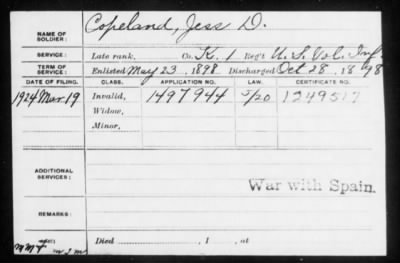 NAME OF SOLDIER: Copeland, Jess D.
SERVICE: Late rank, Co. K, 1 Reg't U. S. Vol. Inf.
TERM OF SERVICE: Enlisted May 23, 1898. Discharged Oct 28, 1898
DATE OF FILING. CLASS. APPLICATION NO. LAW. CERTIFICATE NO.
1924 Mar. 19 Invalid, 1497944 5/20 1249517
Widow,
Minor,
ADDITIONAL SERVICES: War with Spain.
REMARKS:
Died , 1 , at